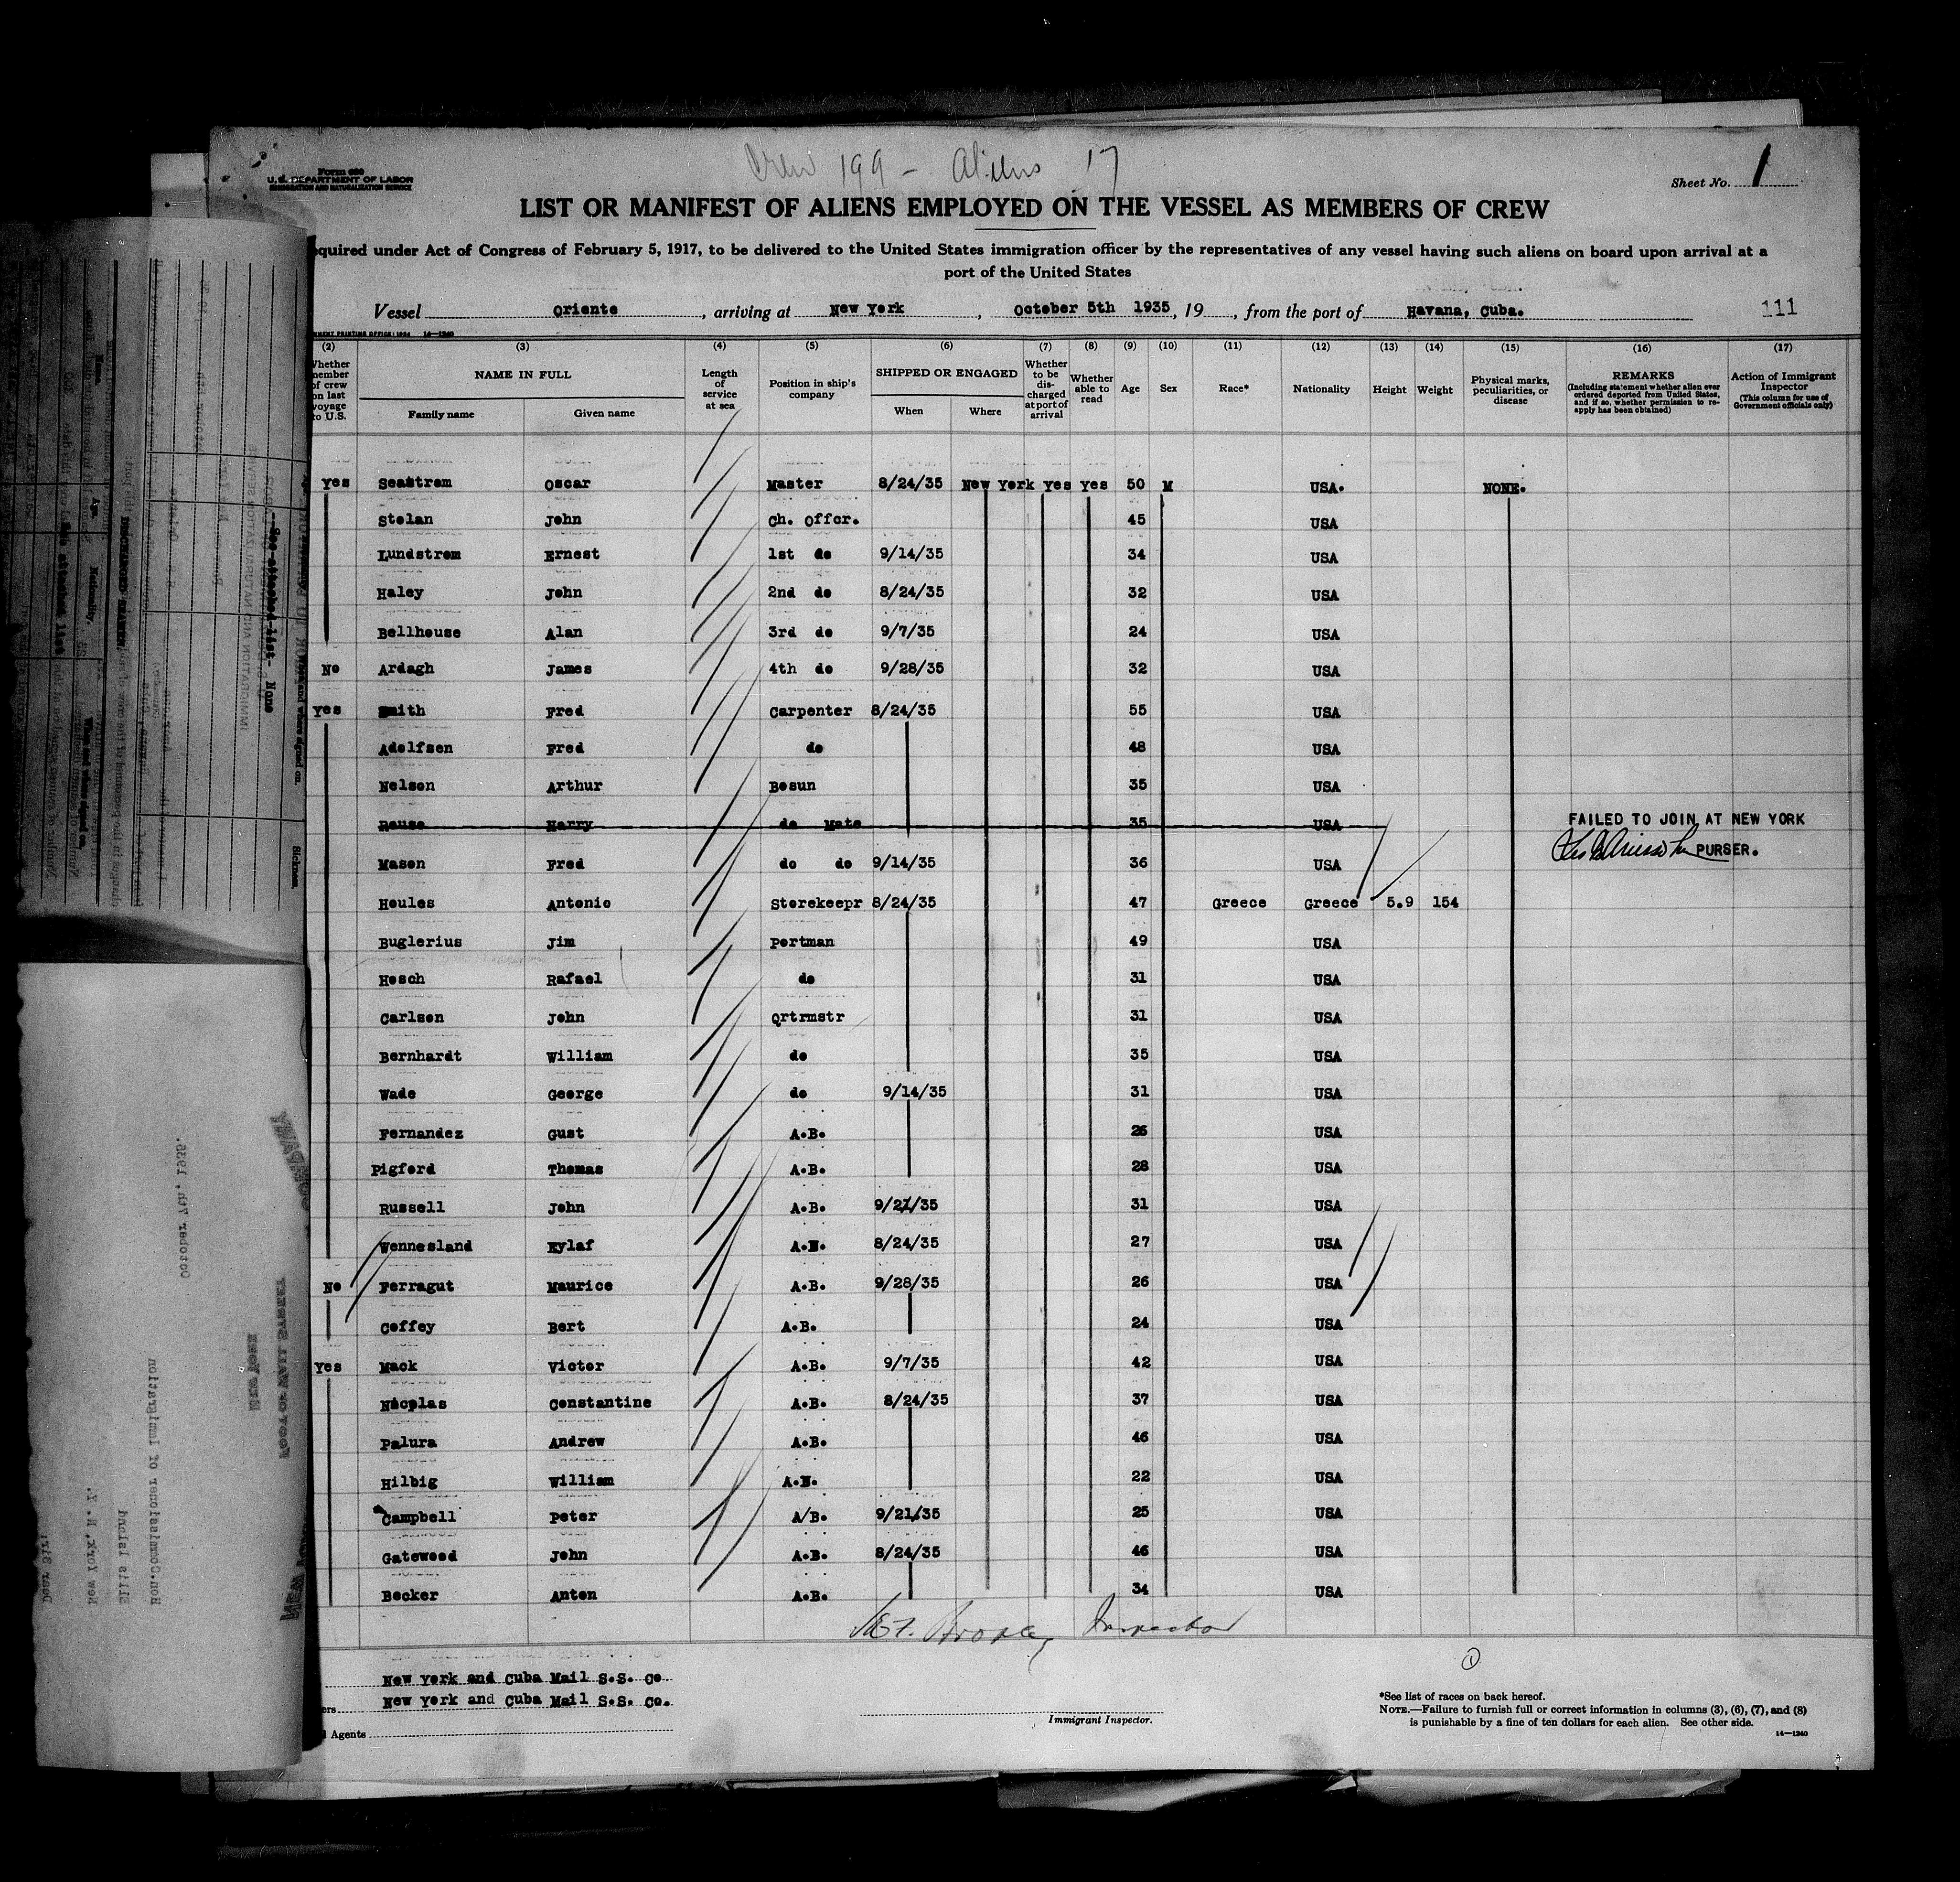 Crew 199 - Aliens 17
Form 680
U. S. DEPARTMENT OF LABOR
IMMIGRATION AND NATURALIZATION SERVICE
Sheet No. 1
LIST OR MANIFEST OF ALIENS EMPLOYED ON THE VESSEL AS MEMBERS OF CREW
equired under Act of Congress of February 5, 1917, to be delivered to the United States immigration officer by the representatives of any vessel having such aliens on board upon arrival at a
port of the United States
Vessel Oriente, arriving at New York, October 5th 1935, 19, from the port of Havana, Cuba.
111
(2) (3) (4) (5) (6) (7) (8) (9) (10) (11) (12) (13) (14) (15) (16) (17)
Whether member of crew on last voyage to U.S.
NAME IN FULL
Family name Given name
Length of service at sea
Position in ship's company
SHIPPED OR ENGAGED
When Where
Whether to be discharged at port of arrival
Whether able to read
Age Sex Race* Nationality Height Weight
Physical marks, peculiarities, or disease
REMARKS
(Including statement whether alien ever ordered deported from United States, and if so, whether permission to reapply has been obtained)
Action of Immigrant Inspector
(This column for use of Government officials only)
Yes Seastrom Oscar Master 8/24/35 New York Yes Yes 50 M USA. NONE.
Stolan John Ch. Offcr. 45 USA
Lundstrom Ernest 1st do 9/14/35 34 USA
Haley John 2nd do 8/24/35 32 USA
Bellhouse Alan 3rd do 9/7/35 24 USA
No Ardagh James 4th do 9/28/35 32 USA
Yes Smith Fred Carpenter 8/24/35 55 USA
Adolfsen Fred do 48 USA
Nelson Arthur Bosun 35 USA
Harry do Mate 35 USA FAILED TO JOIN AT NEW YORK
PURSER.
Mason Fred do do 9/14/35 36 USA
Houles Antonio Storekeepr 8/24/35 47 Greece Greece 5.9 154
Buglerius Jim Portman 49 USA
Hosch Rafael do 31 USA
Carlson John Qrtrmstr 31 USA
Bernhardt William do 35 USA
Wade George do 9/14/35 31 USA
Fernandez Gust A.B. 26 USA
Pigford Thomas A.B. 28 USA
Russell John A.B. 9/21/35 31 USA
Wennesland Eylaf A.B. 8/24/35 27 USA
No Ferragut Maurice A.B. 9/28/35 26 USA
Coffey Bert A.B. 24 USA
Yes Mack Victor A.B. 9/7/35 42 USA
Nicolas Constantine A.B. 8/24/35 37 USA
Palura Andrew A.B. 46 USA
Hilbig William A.B. 22 USA
Campbell Peter A/B. 9/21/35 25 USA
Gatewood John A.B. 8/24/35 46 USA
Becker Anton A.B. 34 USA
Inspector
New York and Cuba Mail S.S. Co
New York and Cuba Mail S.S. Co.
Agents
Immigrant Inspector.
*See list of races on back hereof.
NOTE.—Failure to furnish full or correct information in columns (3), (6), (7), and (8)
is punishable by a fine of ten dollars for each alien. See other side.
14—1240
October 7th, 1935.
Hon. Commissioner of Immigration
Ellis Island
New York, N. Y.
Dear Sir:
FOOT OF WALL STREET
NEW YORK